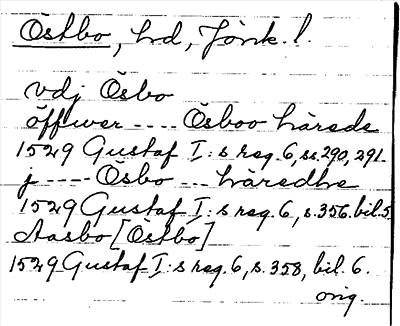 Östbo, hd, Jönk. l.
vdj Ösbo
öffwer ---- Ösboo härads
1529 Gustaf I:s reg. 6, ss. 290, 291.
j ---- Ösbo --- häredhe
1529 Gustaf I:s reg. 6, s. 356. bil. 5
Aasbo [Östbo]
1529 Gustaf I:s reg. 6, s. 358, bil. 6.
orig.